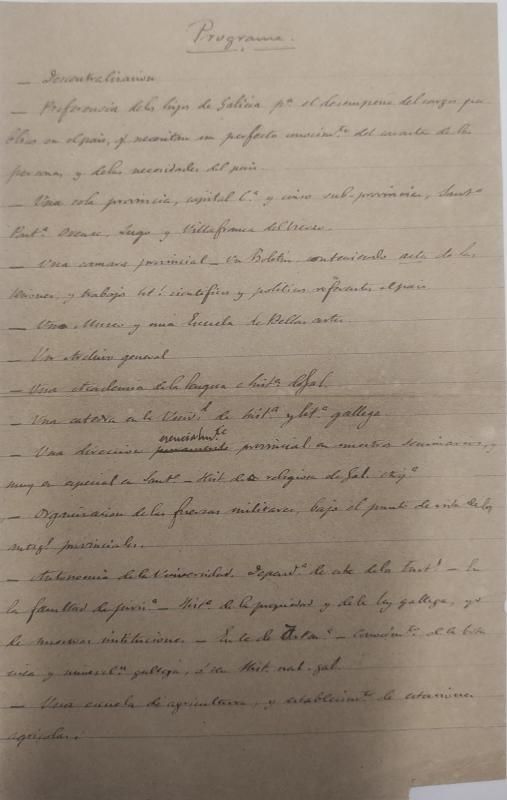 Programa.
— Descentralizacion
— Preferencia de los hijos de Galicia pª el desempeño del cargos pu-
blicos en el pais, qe necesitan un perfecto conocimto del caracter de las
personas y de las necesidades del pais.
— Una sola provincia, capital Cª y cinco sub-provincias, Santº
Pontª Orense, Lugo y Villafranca del Vierzo.
— Una camara provincial — Un Boletin, conteniendo acta de las
sesiones, y trabajos litˢ cientificos y politicos referentes el pais.
— Un Museo y una Escuela de Bellas artes
— Un Archivo general
— Una Academia de la lengua e histª de Gal.
— Una catedra en la Univd de histª y litª gallega
— Una direccion esencialmte provincial en nuestros seminarios, y
muy en especial en Santº — Hist. religiosa de Gal.
— Organizacion de las fuerzas militares, bajo el punto de vista de los
provinciales.
— Autonomia de la Universidad. Depend.ª de esta de los Instˢ — En
la facultad de jurisª — Histª de la propiedad y de la ley gallega, y
de nuestras instituciones — En la de — conocimto de la
y mineralª gallega, ó sea Hist. nat. gal.
— Una escuela de agricultura, y establecimto de estaciones
agricolas.